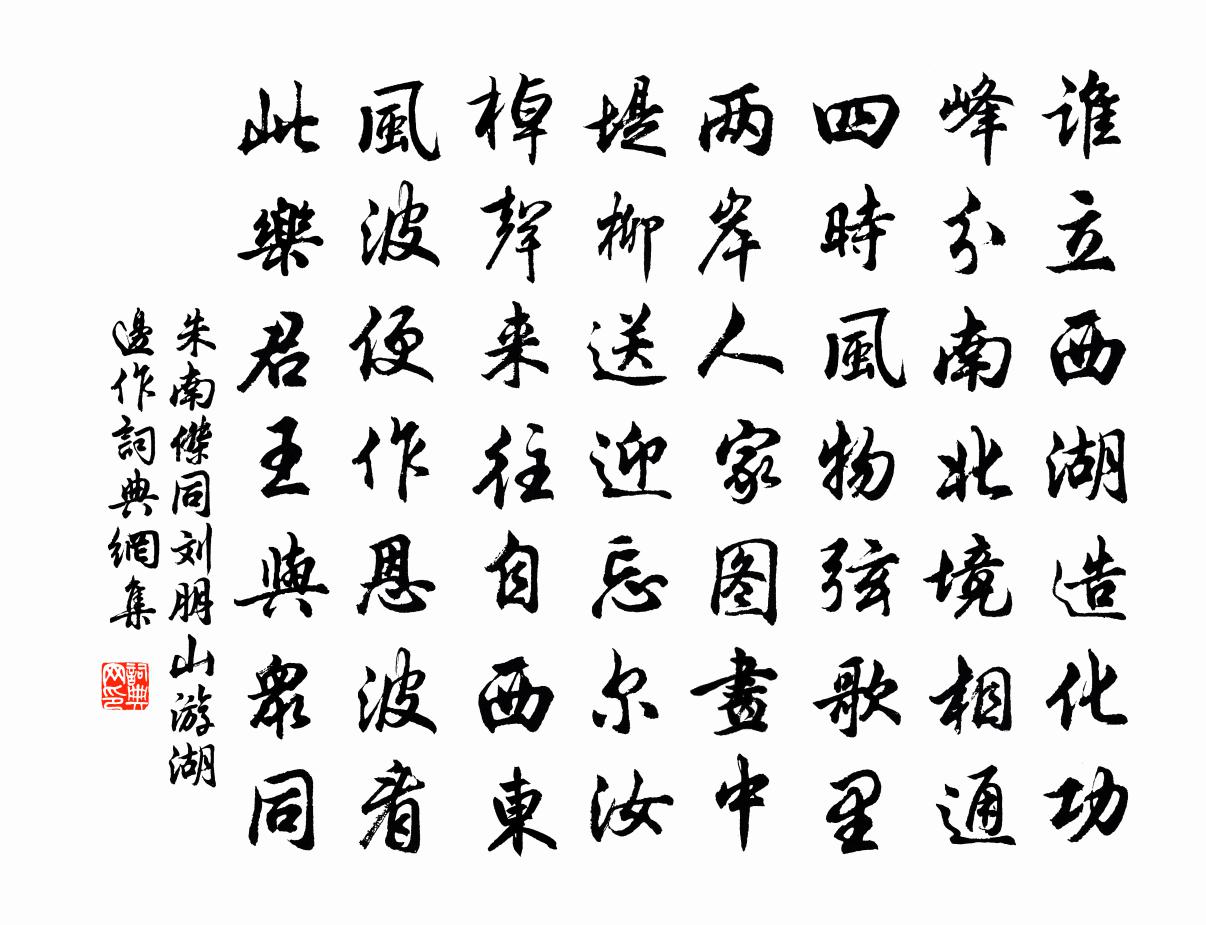 谁立西湖造化功
峰分南北境相通
四時風物弦歌里
两岸人家图畫中
堤柳送迎忘尔汝
棹聲来往自西東
風波便作恩波看
此樂君王與眾同
朱南傑同刘朋山游湖
邊作詞典網集
詞典
网印